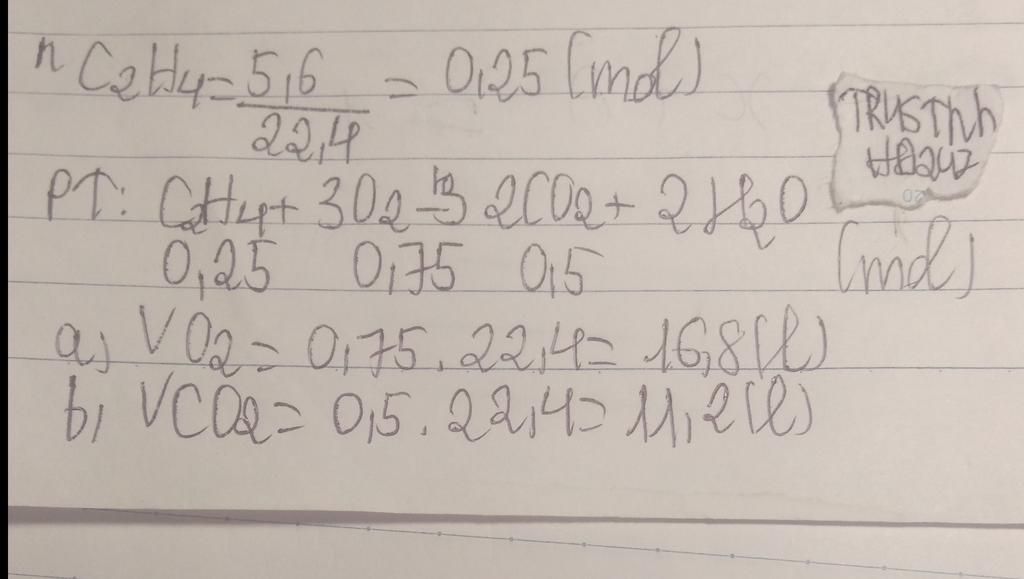 nC2H4 = 5,6/22,4 = 0,25 (mol)
PT: C2H4 + 3O2 → 2CO2 + 2H2O
0,25 0,75 0,5 (mol)
a) VO2 = 0,75 . 22,4 = 16,8 (l)
b) VCO2 = 0,5 . 22,4 = 11,2 (l)